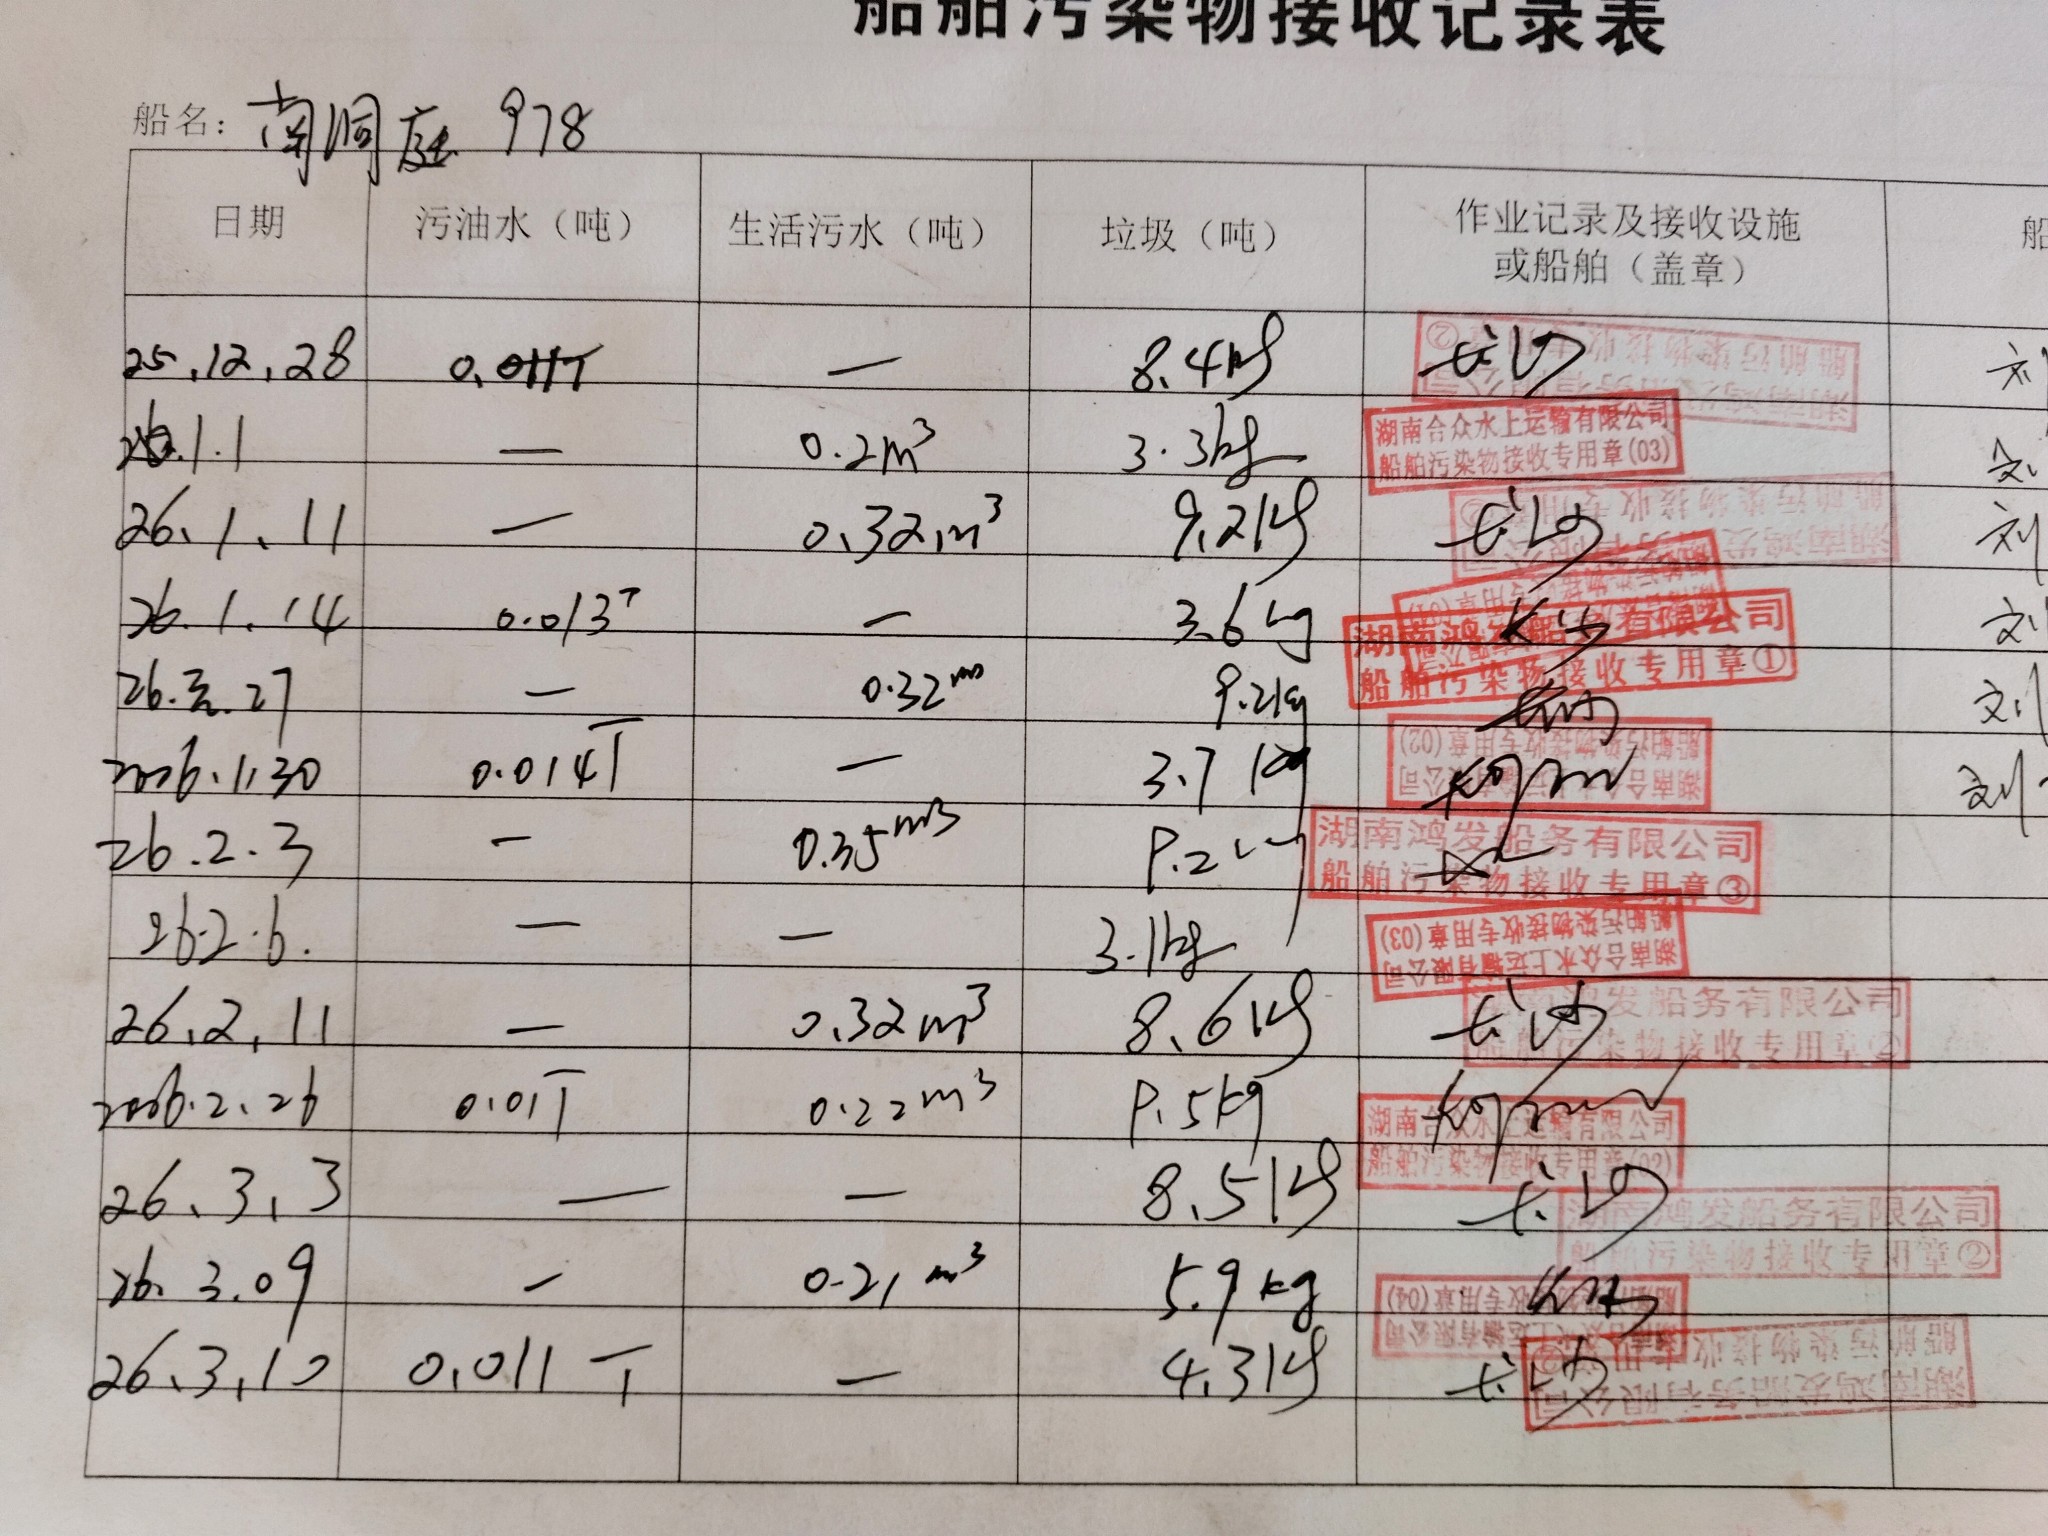 船舶污染物接收记录表
船名: 南洞庭 978
日期 污油水（吨） 生活污水（吨） 垃圾（吨） 作业记录及接收设施或船舶（盖章） 船
25.12.28 0.011T — 8.4kg 长沙 湖南鸿发船务有限公司 船舶污染物接收专用章② 刘
26.1.1 — 0.2m³ 3.3kg 湖南合众水上运输有限公司 船舶污染物接收专用章(03) 刘
26.1.11 — 0.32m³ 9.2kg 长沙 湖南鸿发船务有限公司 船舶污染物接收专用章② 刘
26.1.14 0.013T — 3.6kg 长沙 刘
湖南鸿发船务有限公司 船舶污染物接收专用章①
26. 27 — 0.32m³ 9.2kg 刘
2026.1.30 0.014T — 3.7kg 湖南合众水上运输有限公司 船舶污染物接收专用章(02) 刘
26.2.3 — 0.35m³ 9.2 湖南鸿发船务有限公司 船舶污染物接收专用章③
26.2.6. — — 3.1kg 湖南合众水上运输有限公司 船舶污染物接收专用章(03)
26.2.11 — 0.32m³ 8.6kg 长沙 湖南鸿发船务有限公司 船舶污染物接收专用章②
2026.2.26 0.01T 0.22m³ 9.5kg 湖南合众水上运输有限公司 船舶污染物接收专用章(02)
26.3.3 — — 8.5kg 长沙 湖南鸿发船务有限公司 船舶污染物接收专用章②
26.3.09 — 0.21m³ 5.9kg 湖南合众水上运输有限公司 船舶污染物接收专用章(04)
26.3.10 0.011T — 4.3kg 长沙 湖南鸿发船务有限公司 船舶污染物接收专用章②